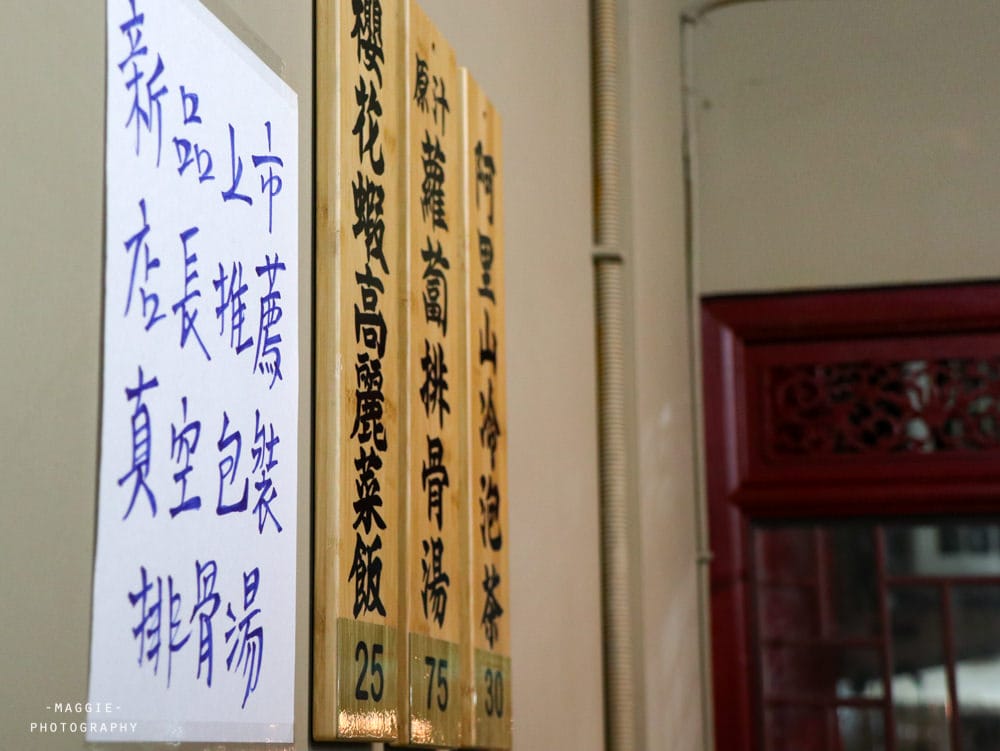 新品上市
店長推薦
真空包裝
排骨湯
櫻花蝦高麗菜飯
25
原汁蘿蔔排骨湯
75
阿里山冷泡茶
30
-MAGGIE-
PHOTOGRAPHY